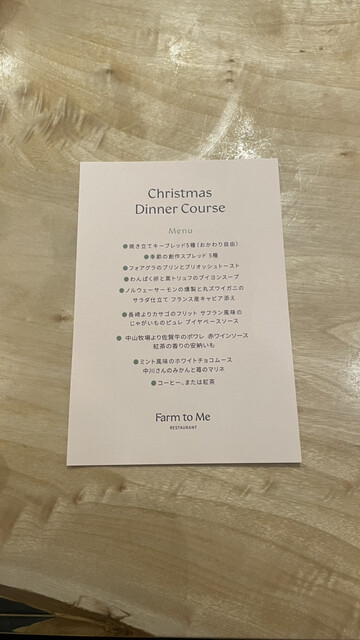 Christmas
Dinner Course
Menu
●焼き立てキーブレッド5種（おかわり自由）
●季節の創作スプレッド 5種
●フォアグラのプリンとブリオッシュトースト
●わんぱく卵と黒トリュフのブイヨンスープ
●ノルウェーサーモンの燻製と丸ズワイガニの
サラダ仕立て フランス産キャビア添え
●長崎よりカサゴのフリット サフラン風味の
じゃがいものピュレ ブイヤベースソース
● 中山牧場より佐賀牛のポワレ 赤ワインソース
紅茶の香りの安納いも
●ミント風味のホワイトチョコムース
中川さんのみかんと苺のマリネ
●コーヒー、または紅茶
Farm to Me
RESTAURANT